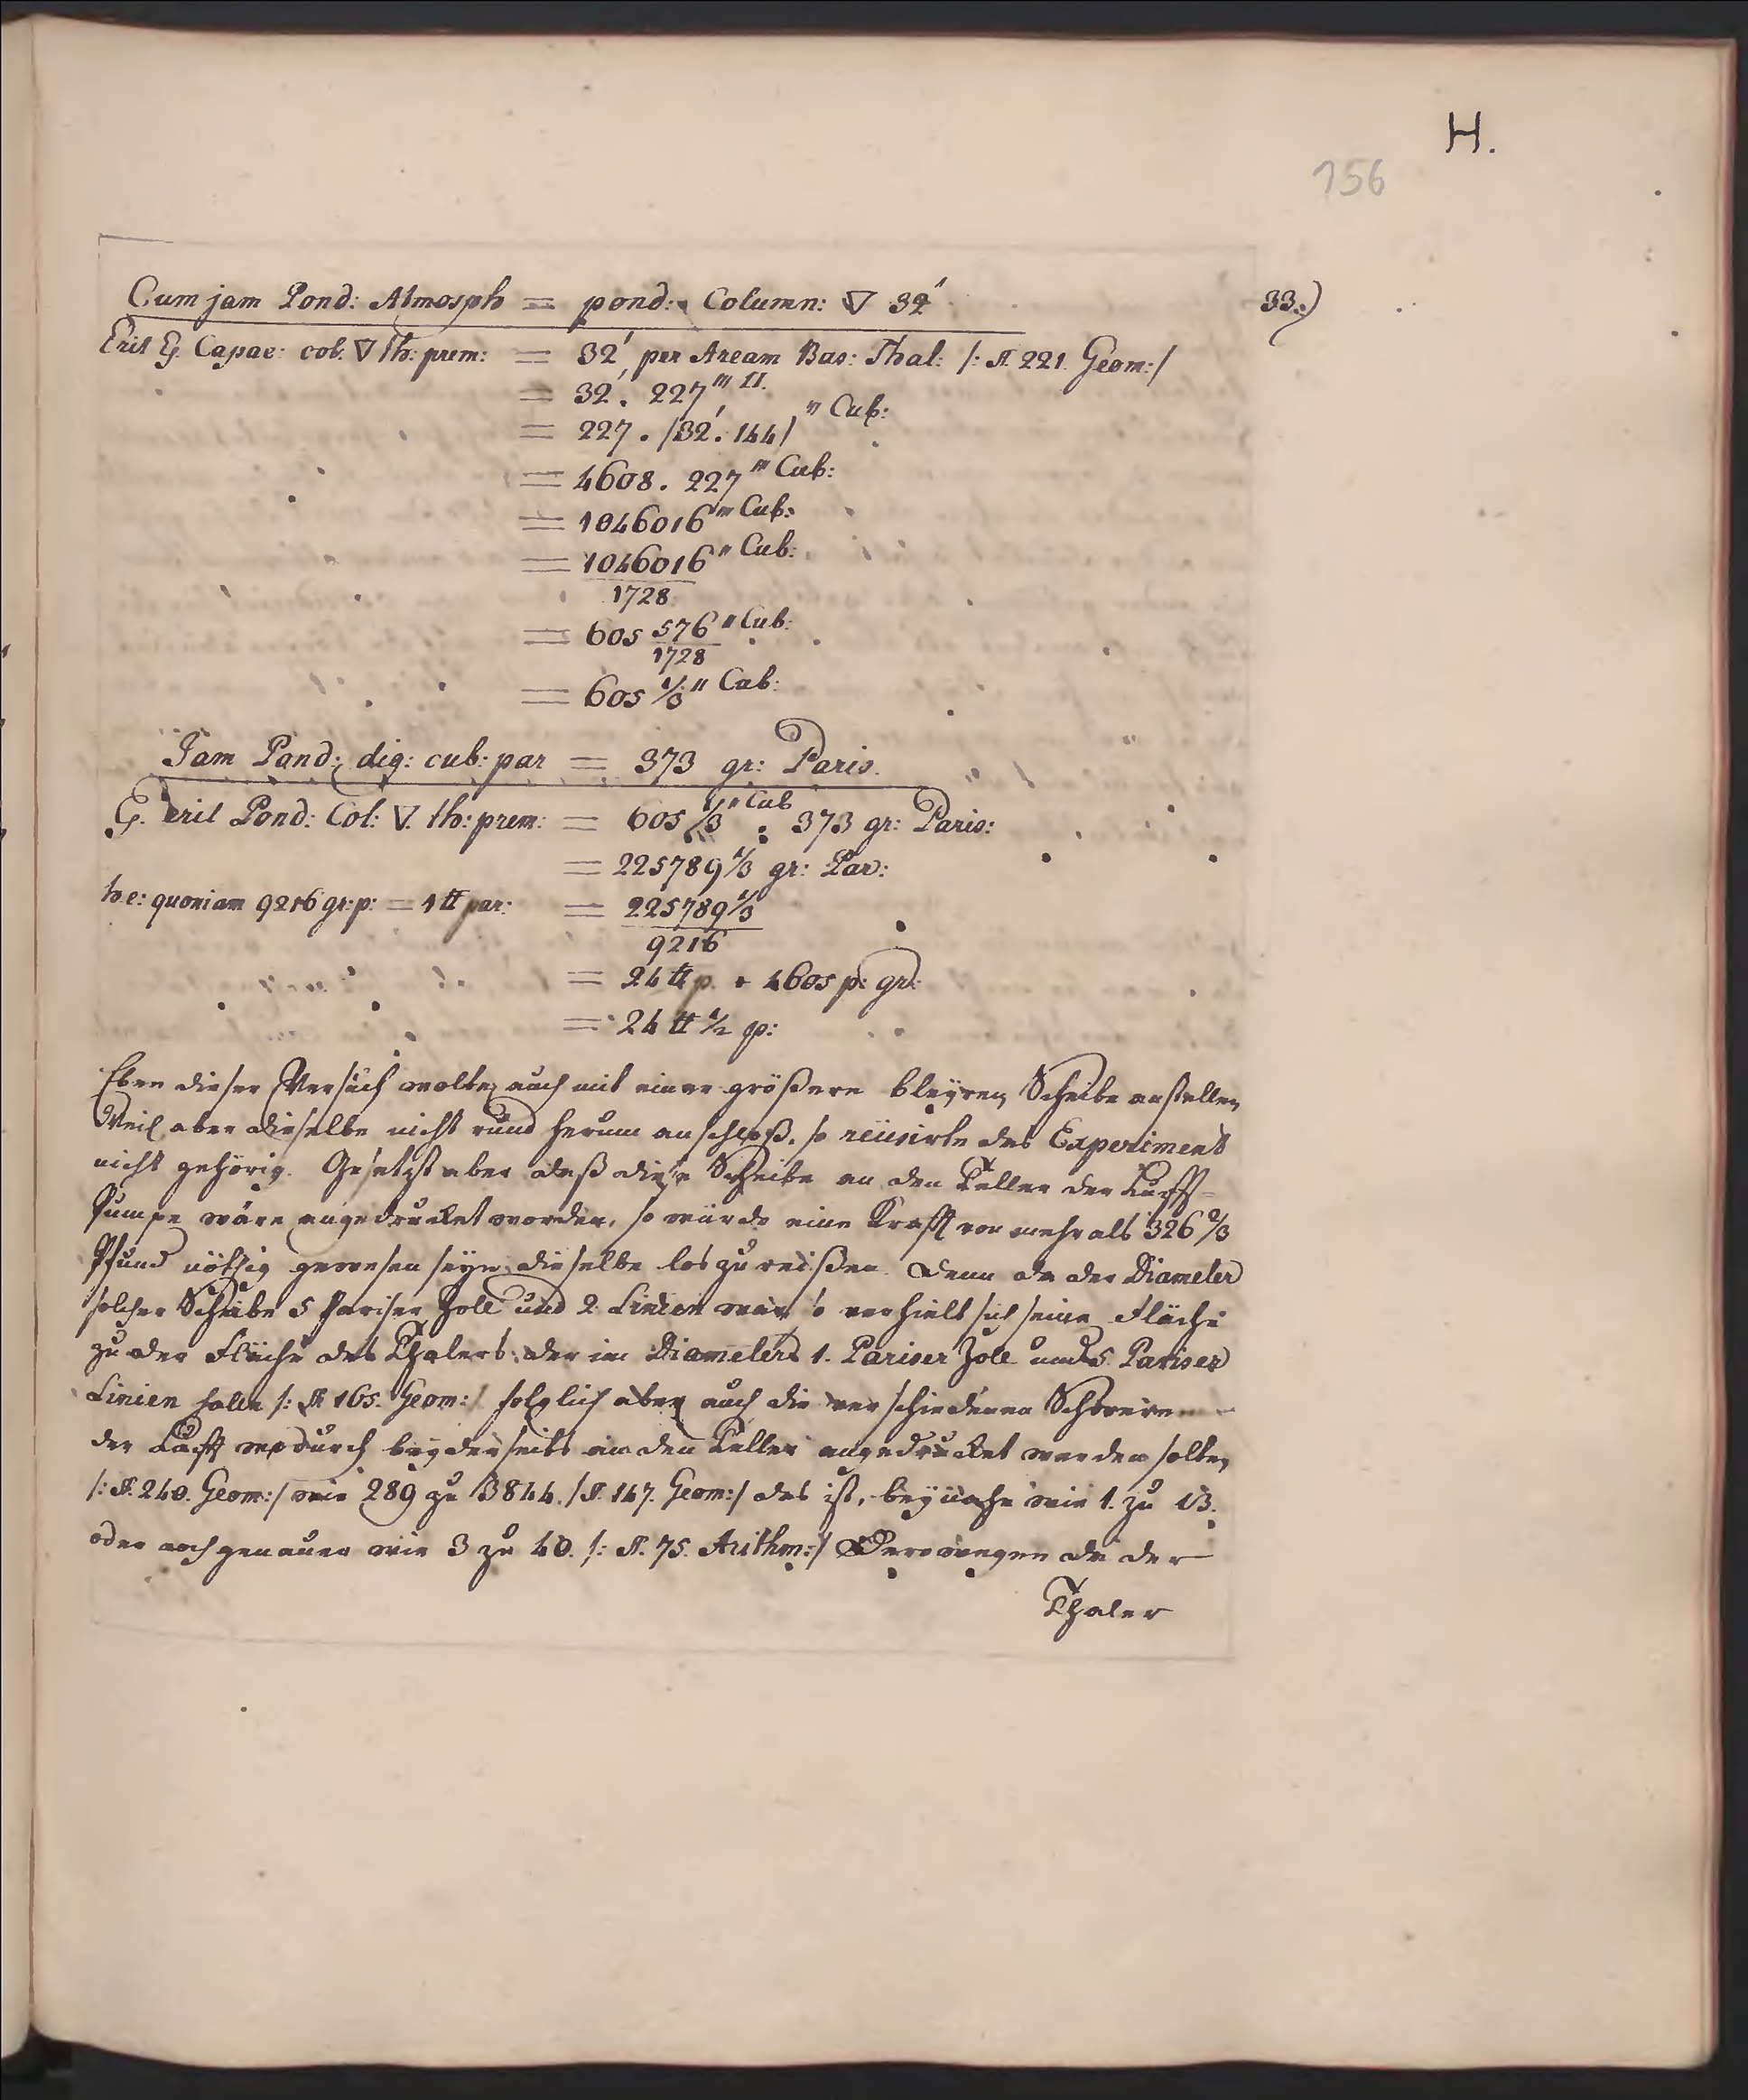 H.
156
33.)
Cum jam Pond: Atmosph = pond: Column: ▽ 32'
Erit Eg. Capac: col. ▽ th: prem: = 32' per Aream Bas: Thal: /: §. 221. Geom:/
= 32'. 227''' □.
= 227. /32'. 144/ ''' Cub:
= 4608. 227''' Cub:
= 1046016''' Cub:
= 1046016'' Cub:
1728
= 605 576'' Cub:
1728
= 605 1/3'' Cub:
Jam Pond: dig: cub: par = 373 gr: Paris.
Eg. erit Pond: Col: ▽. th: prem: = 605 1/3'' Cub . 373 gr: Paris:
= 225789 1/3 gr: Par:
h.e: quoniam 9216 gr: p: = 1 ℔ par: = 225789 1/3
9216
= 24 ℔ p. + 4605 p: gr:
= 24 ℔ 1/2 p:
Eben dieser Versuch wolte auch mit einer größern bleyren Scheibe anstellen
Weil aber dieselbe nicht rund herum anschloß, so reüsirte das Experiment
nicht gehörig. Gesetzt aber daß diese Scheibe an den Teller der Lufft-
Pumpe wäre angedrucket worden, so würde eine Krafft von mehr als 326 2/3
Pfund nöthig gewesen seyn dieselbe los zu reißen. Denn da der Diameter
solcher Scheibe 5 Pariser Zoll und 2 Linien war, so verhielt sich seine Fläche
zu der Fläche des Thalers der im Diameters 1. Pariser Zoll und 5. Pariser
Linien halte /: §. 165. Geom:/ folglich aber auch die verschiedenen Schweren
der Lufft wodurch beyderseits an den Teller angedrucket werden solten
/: §. 240. Geom:/ wie 289 zu 3844. /§. 147. Geom:/ das ist, beynahe wie 1. zu 13.
oder noch genauer wie 3 zu 40. /: §. 75. Arithm:/ Derowegen da der
Thaler